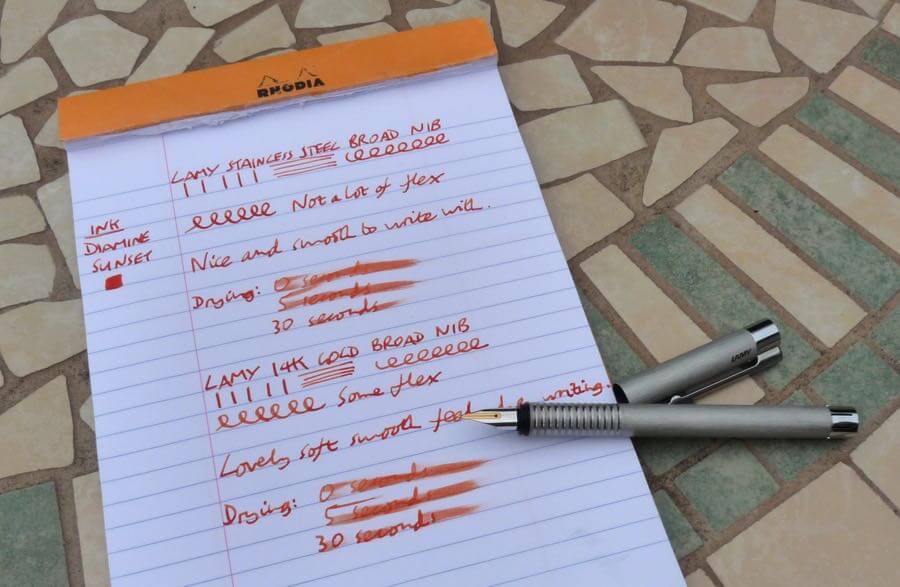 RHODIA
LAMY STAINLESS STEEL BROAD NIB
eeeeeeee
eeeeee Not a lot of flex
INK
DIAMINE
SUNSET
Nice and smooth to write with.
Drying: 0 seconds
5 seconds
30 seconds
LAMY 14K GOLD BROAD NIB
eeeeeeee
eeeeeee Some flex
Lovely soft smooth writing.
Drying: 0 seconds
5 seconds
30 seconds
LAMY